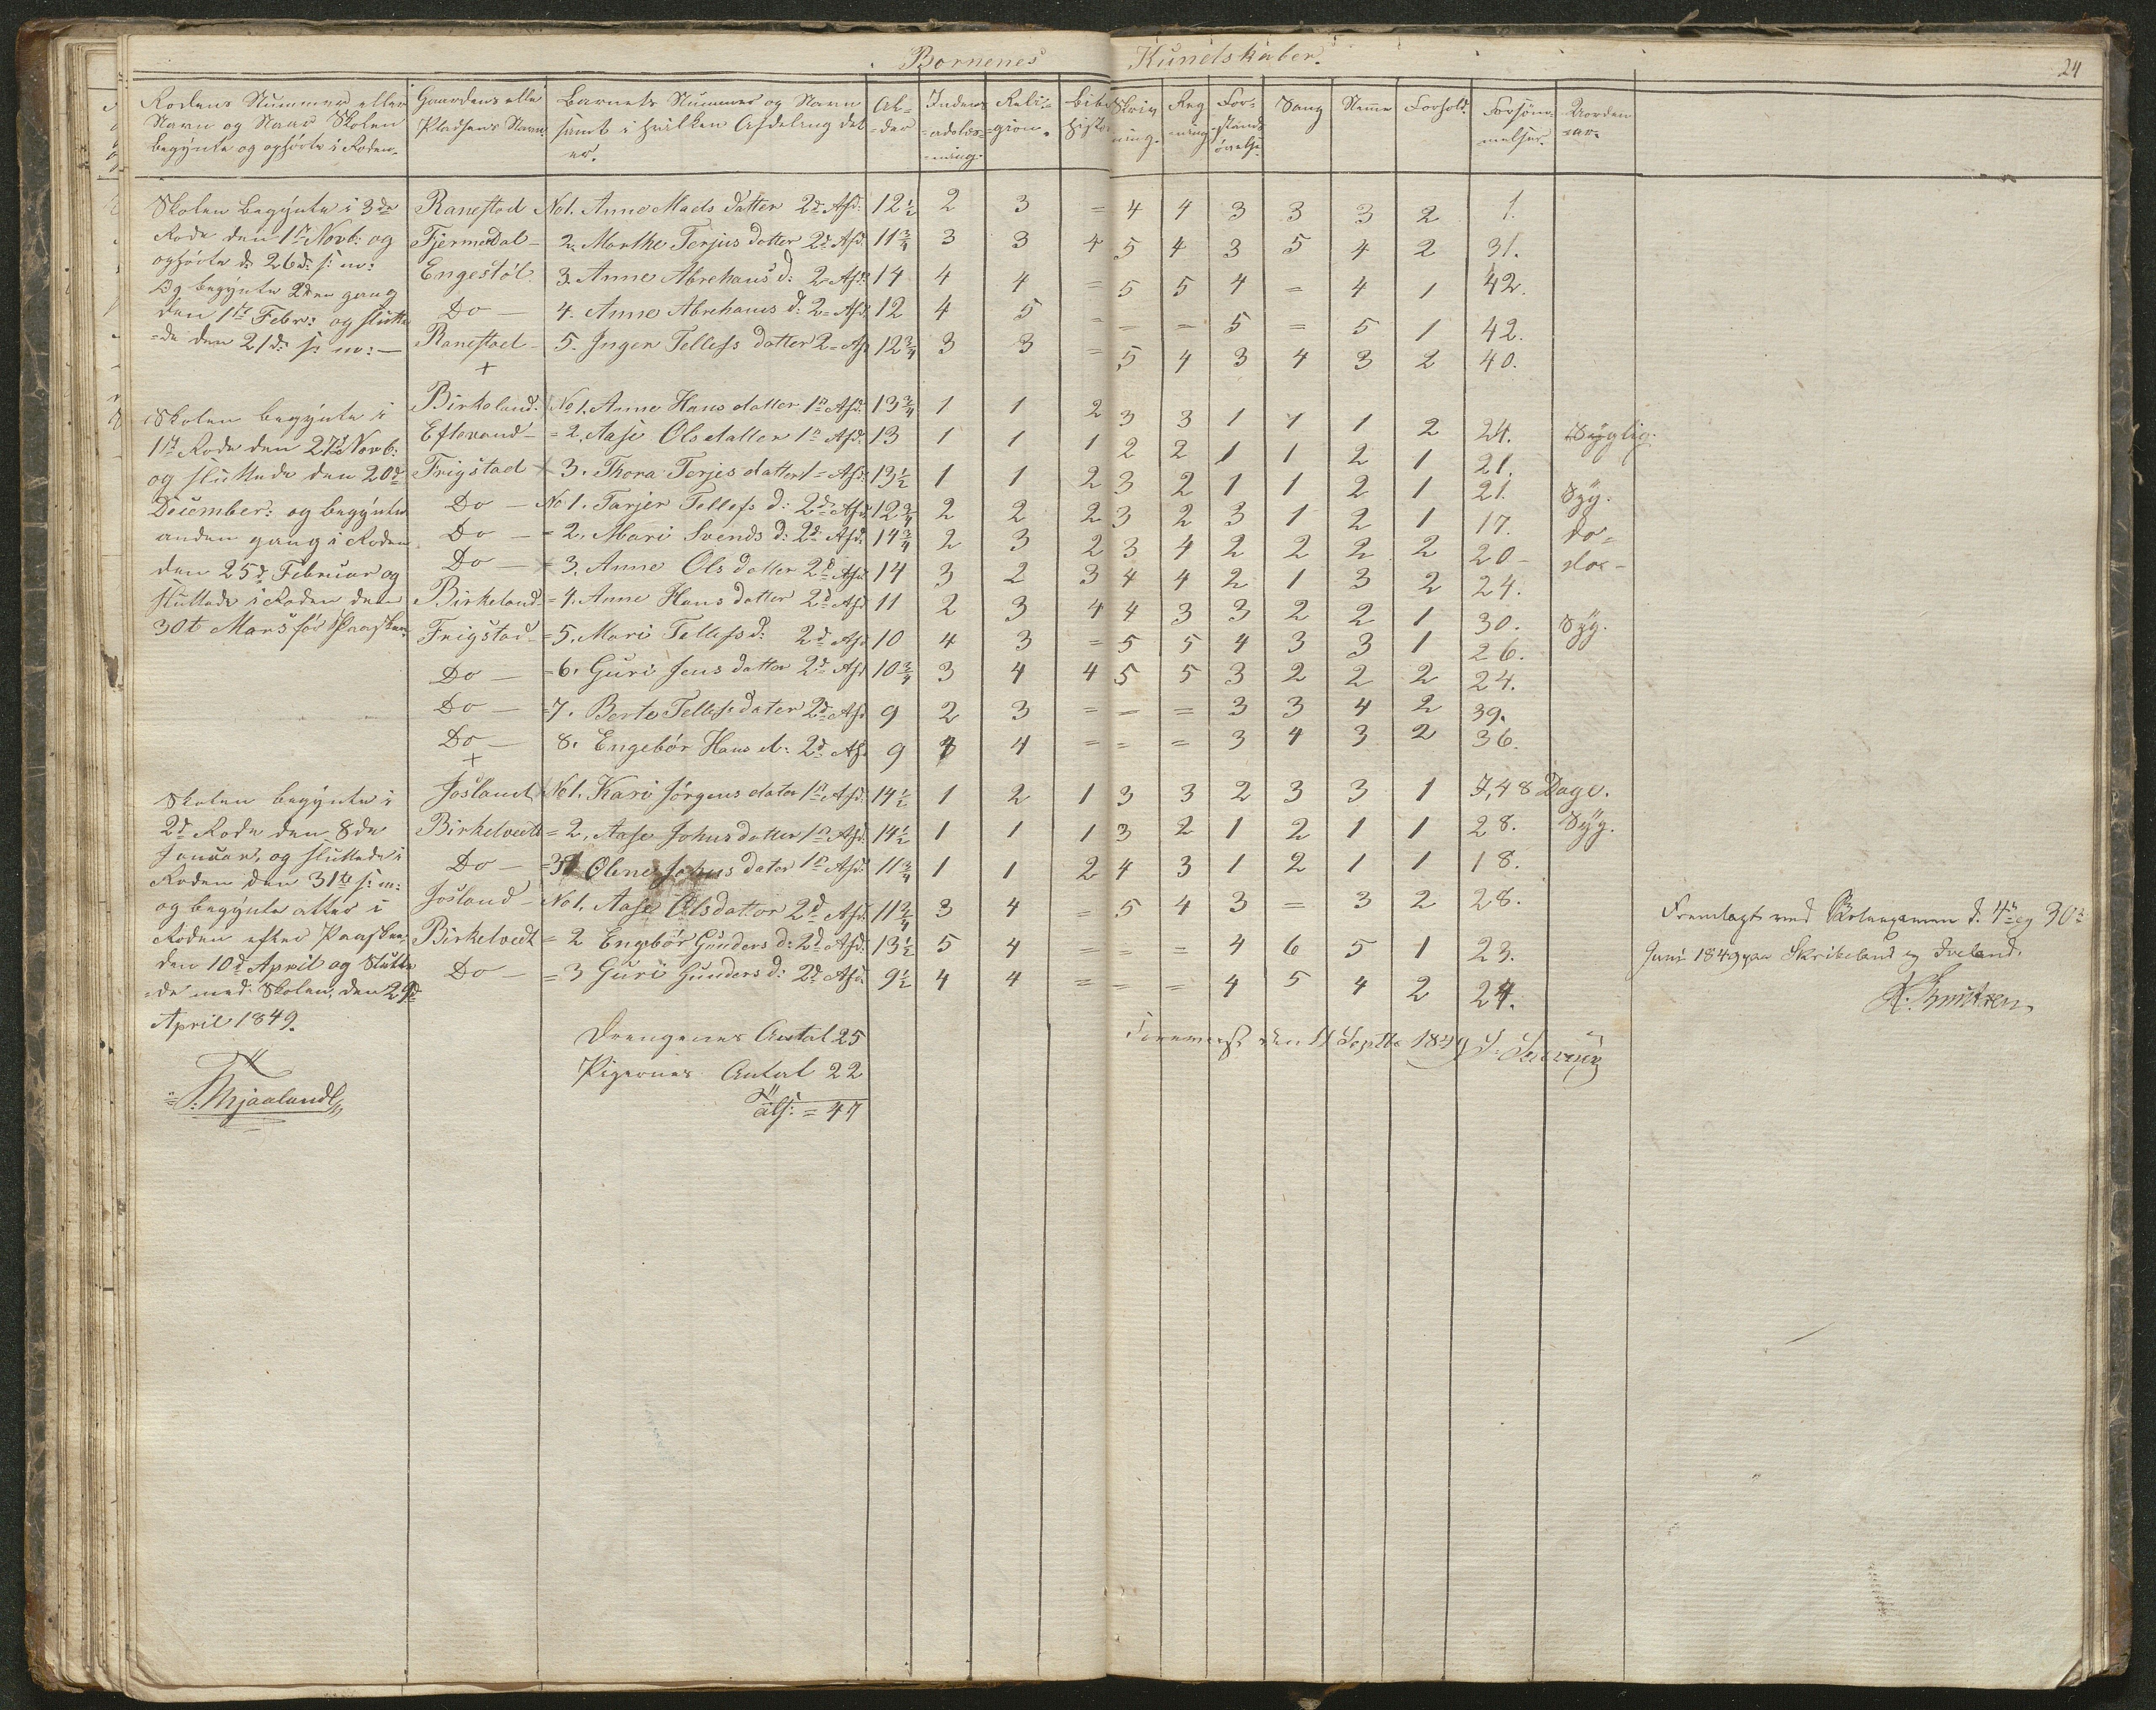 Børnenes Kundskaber.
24
Rodens Nummer eller Navn og Naar Skolen begynte og ophörte i Roden.
Gaardens eller Pladsens Navn
Barnets Nummer og Navn samt i hvilken Afdeling det er.
Al-der
Indenadslæs-ning.
Reli-gion.
Bibe Histo
Skriv ning.
Reg ning
For-stands övelse
Sang
Nemme
Forhold
Forsöm-melser.
Uorden
Skolen begynte i 3de
Rode den 1ste Novb: og
ophörte d: 26d: s: m:
Og begynte 2den gang
den 1ste Febr: og slutte
-de den 21d: s: m: —
Ranestad No 1. Anne Mads datter 2d Afd: 12 1/2 2 3 = 4 4 3 3 3 2 1.
Fjermedal - 2. Marthe Terjus dotter 2d Afd. 11 3/4 3 3 4 5 4 3 5 4 2 31.
Engestöl 3. Anne Abrehams d: 2= Afd: 14 4 4 = 5 5 4 = 4 1 42.
Do — 4. Anne Abrehams d: 2= Afd: 12 4 5 = = = 5 = 5 1 42.
Ranestad - 5. Inger Tellefs dotter 2= Af 12 3/4 3 3 = 5 4 3 4 3 2 40.
+
Skolen begynte i
1ste Rode den 27d Novb:
og sluttede den 20d
December: og begynte
anden gang i Roden
den 25d Februar og
sluttede i Roden den
30t Mars för Paasken.
Birkeland. No 1. Anne Hans datter 1n Afd. 13 3/4 1 1 2 3 3 1 1 1 2 24. Syglig.
Eftevand - = 2. Aase Ols datter 1n Afd: 13 1 1 1 2 2 1 1 2 1 21.
Frigstad × 3. Thora Terjes datter 1= Afd: 13 1/2 1 1 2 3 2 1 1 2 1 21. Syg.
Do — No 1. Tarjer Tellefs d: 2d Afd. 12 3/4 2 2 2 3 2 3 1 2 1 17. do=
Do — = 2. Mari Svends d: 2d Afd. 14 3/4 2 3 2 3 4 2 2 2 2 20 - do= -
Do — × 3. Anne Ols datter 2d Afd 14 3 2 3 4 4 2 1 3 2 24.
Birkeland = 4. Anne Hans datter 2d Afd 11 2 3 4 4 3 3 2 2 1 30. Syg.
Frigstad - = 5. Mari Tellefs d: 2d Afd 10 4 3 = 5 5 4 3 3 1 26.
Do — = 6. Guri Jens datter 2d Afd 10 3/4 3 4 4 5 5 3 2 2 2 24.
Do — = 7. Berte Tellefs dater 2d Afd 9 2 3 = = = 3 3 4 2 39.
Do — 8. Engebör Hans d: 2d Afd 9 4 = = = 3 4 3 2 36.
+
Skolen begynte i
2d Rode den 8de
Januar, og sluttede i
Roden den 31te s: m:
og begynte atter i
Roden efter Paasken
den 10d April og Slutte
-de med Skolen, den 29d
April 1849.
Josland, No 1. Kari Jörgens dater 1n Afd. 14 1/2 1 2 1 3 3 2 3 3 1 I, 48 Dage.
Birkelvedt = 2, Aase Johns datter 1n Afd. 14 1/2 1 1 1 3 2 1 2 1 1 28. Syg.
Do — = 3 Olene Johns dater 1n Afd. 11 3/4 1 1 2 4 3 1 2 1 1 18.
Josland - No 1. Aase Olsdatter 2d Afd. 11 3/4 3 4 = 5 4 3 = 3 2 28.
Birkelvedt = 2 Engebör Gunders d: 2d Afd. 13 1/2 5 4 = = = 4 6 5 1 23.
Do — = 3 Guri Gunders d: 2d Afd. 9 1/2 4 4 = = = 4 5 4 2 24.
Fremlagt ved Skoleexamen d. 4de og 30te
Juni 1849 paa Skribeland og Iveland.
K. Knutzen
Drengenes Antal 25
Pigernes Antal 22
alf: = 47
den 11 Septbr 1849
T. Mjaaland